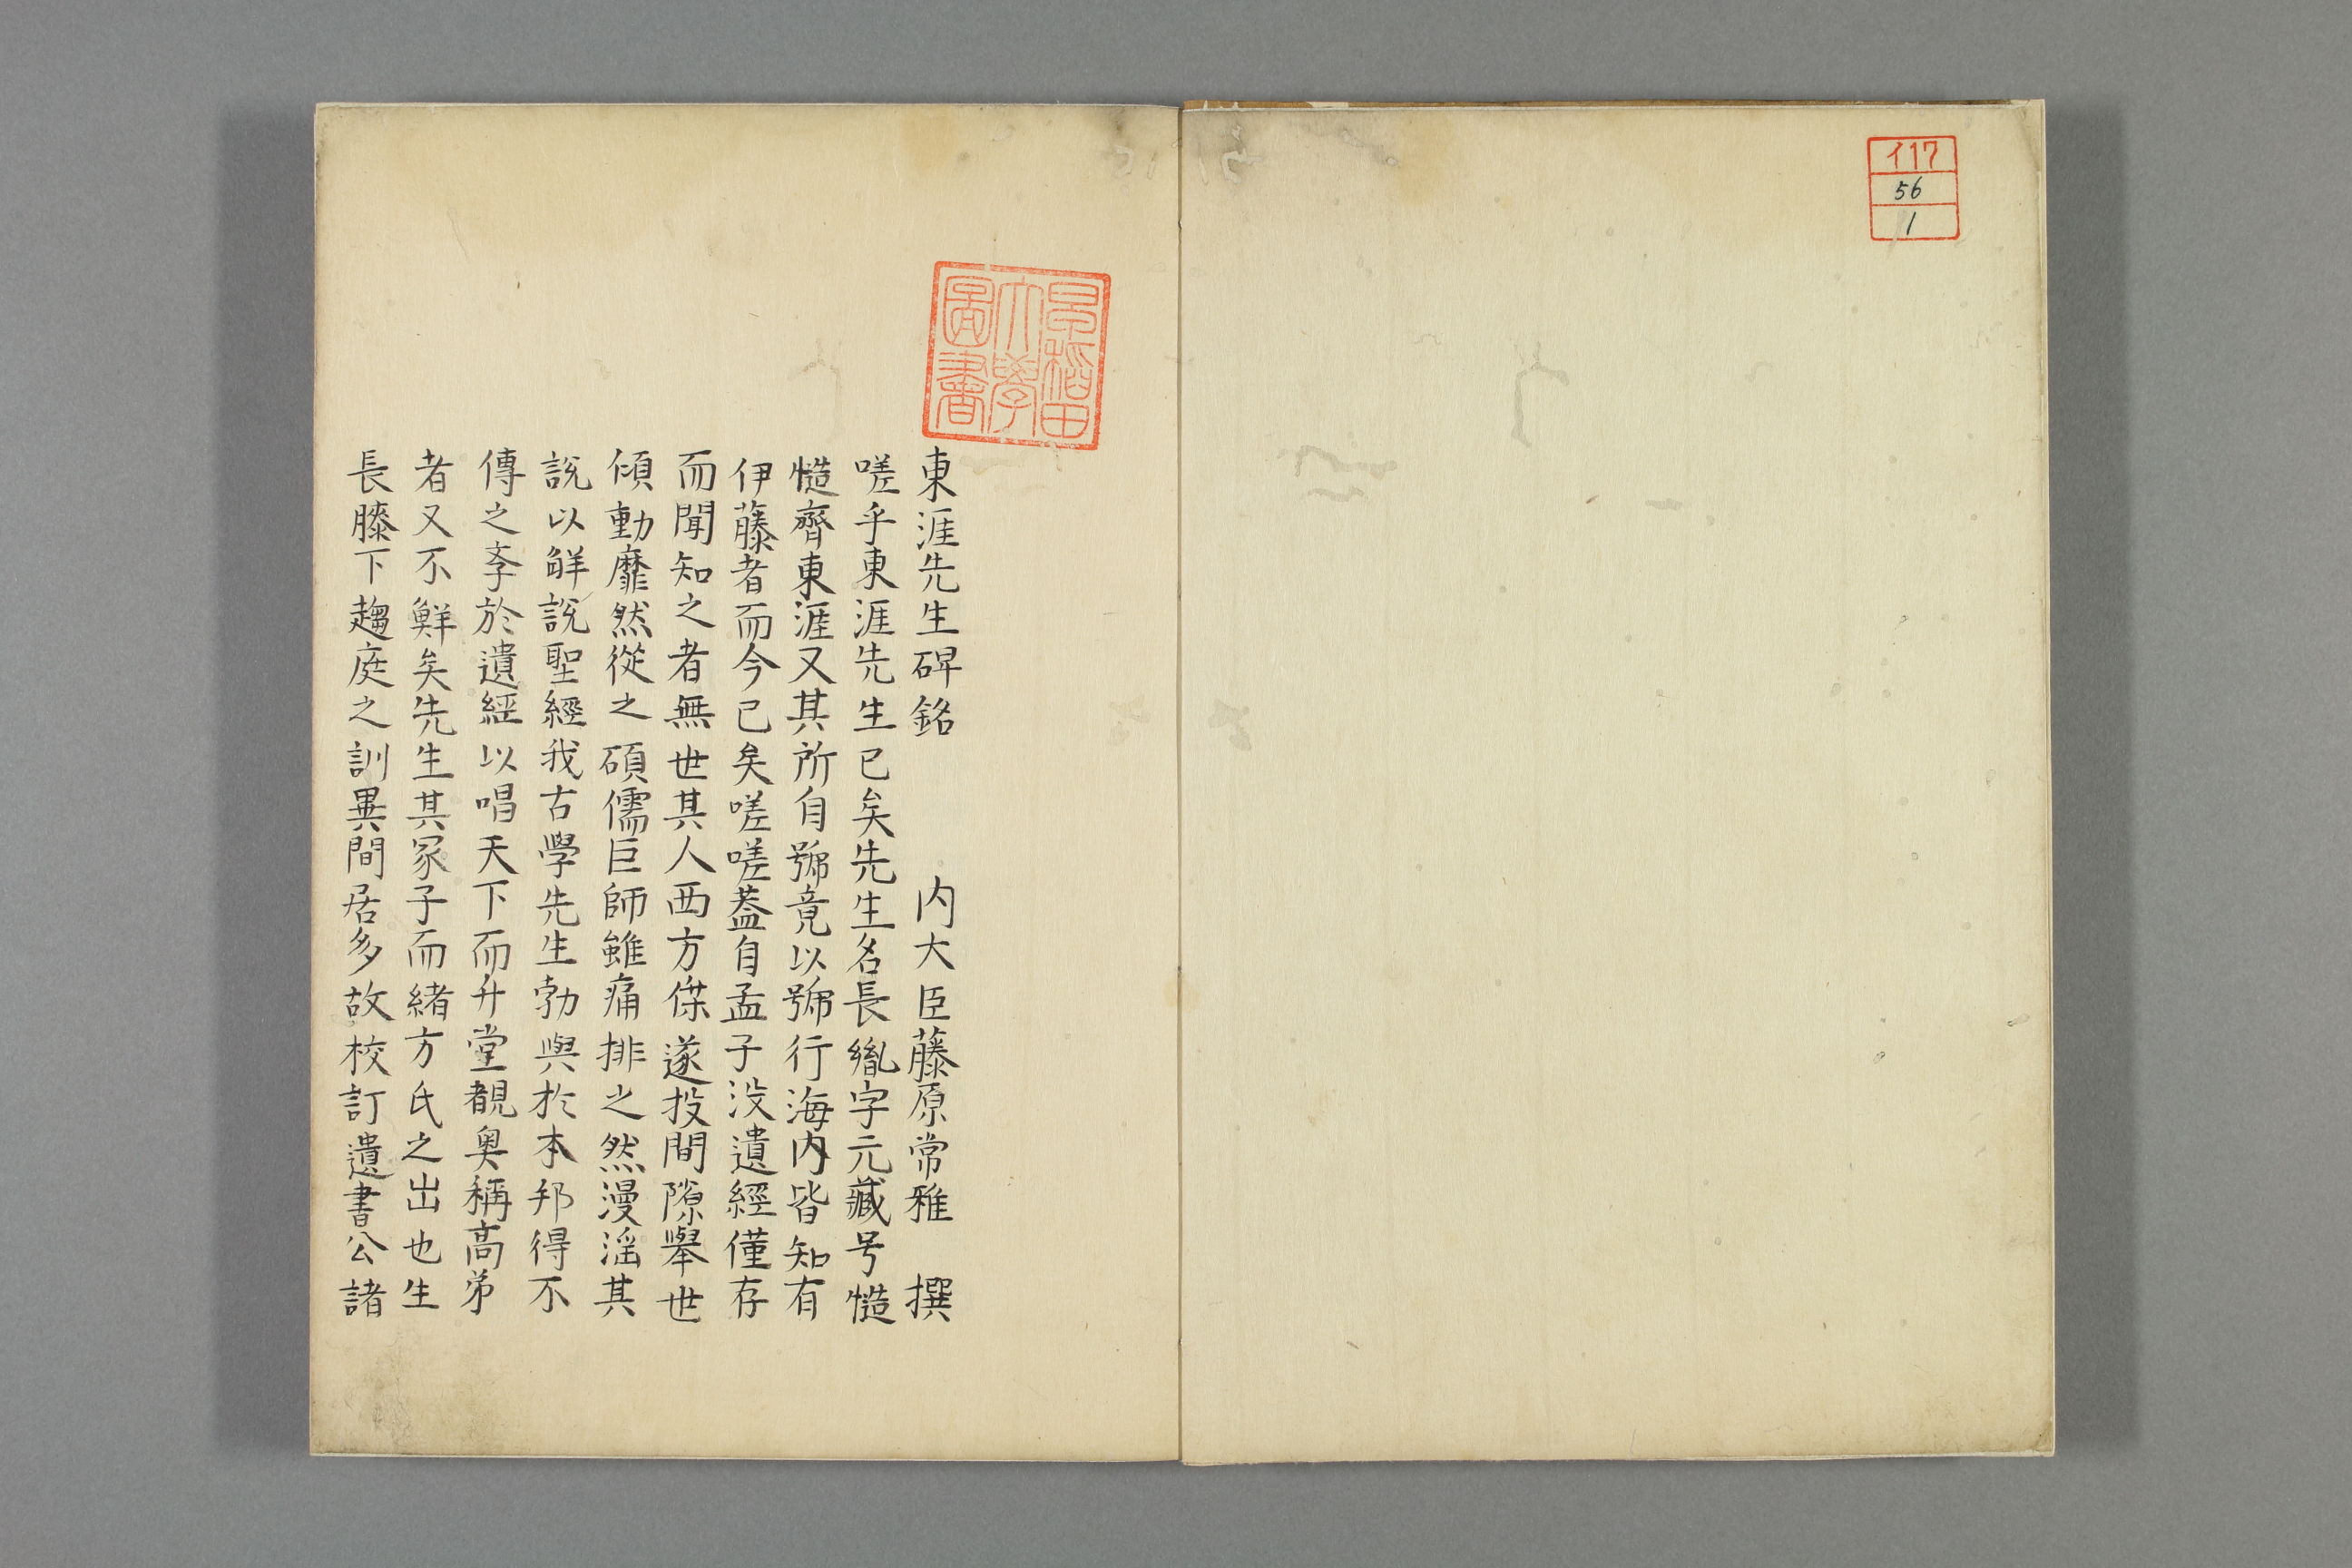 イ17
56
1
早稲田
大學
圖書
東涯先生碑銘 内大臣藤原常雅 撰
嗟乎東涯先生已矣先生名長胤字元藏号慥
慥齊東涯又其所自號竟以號行海内皆知有
伊藤者而今已矣嗟嗟蓋自孟子没遺經僅存
而聞知之者無世其人西方傑遂投間隙舉世
傾動靡然從之碩儒巨師雖痛排之然漫淫其
說以觧說聖經我古學先生勃興於本邦得不
傳之斈於遺經以唱天下而升堂覩奥稱高弟
者又不鮮矣先生其冢子而緒方氏之出也生
長膝下趨庭之訓異間居多故校訂遺書公諸